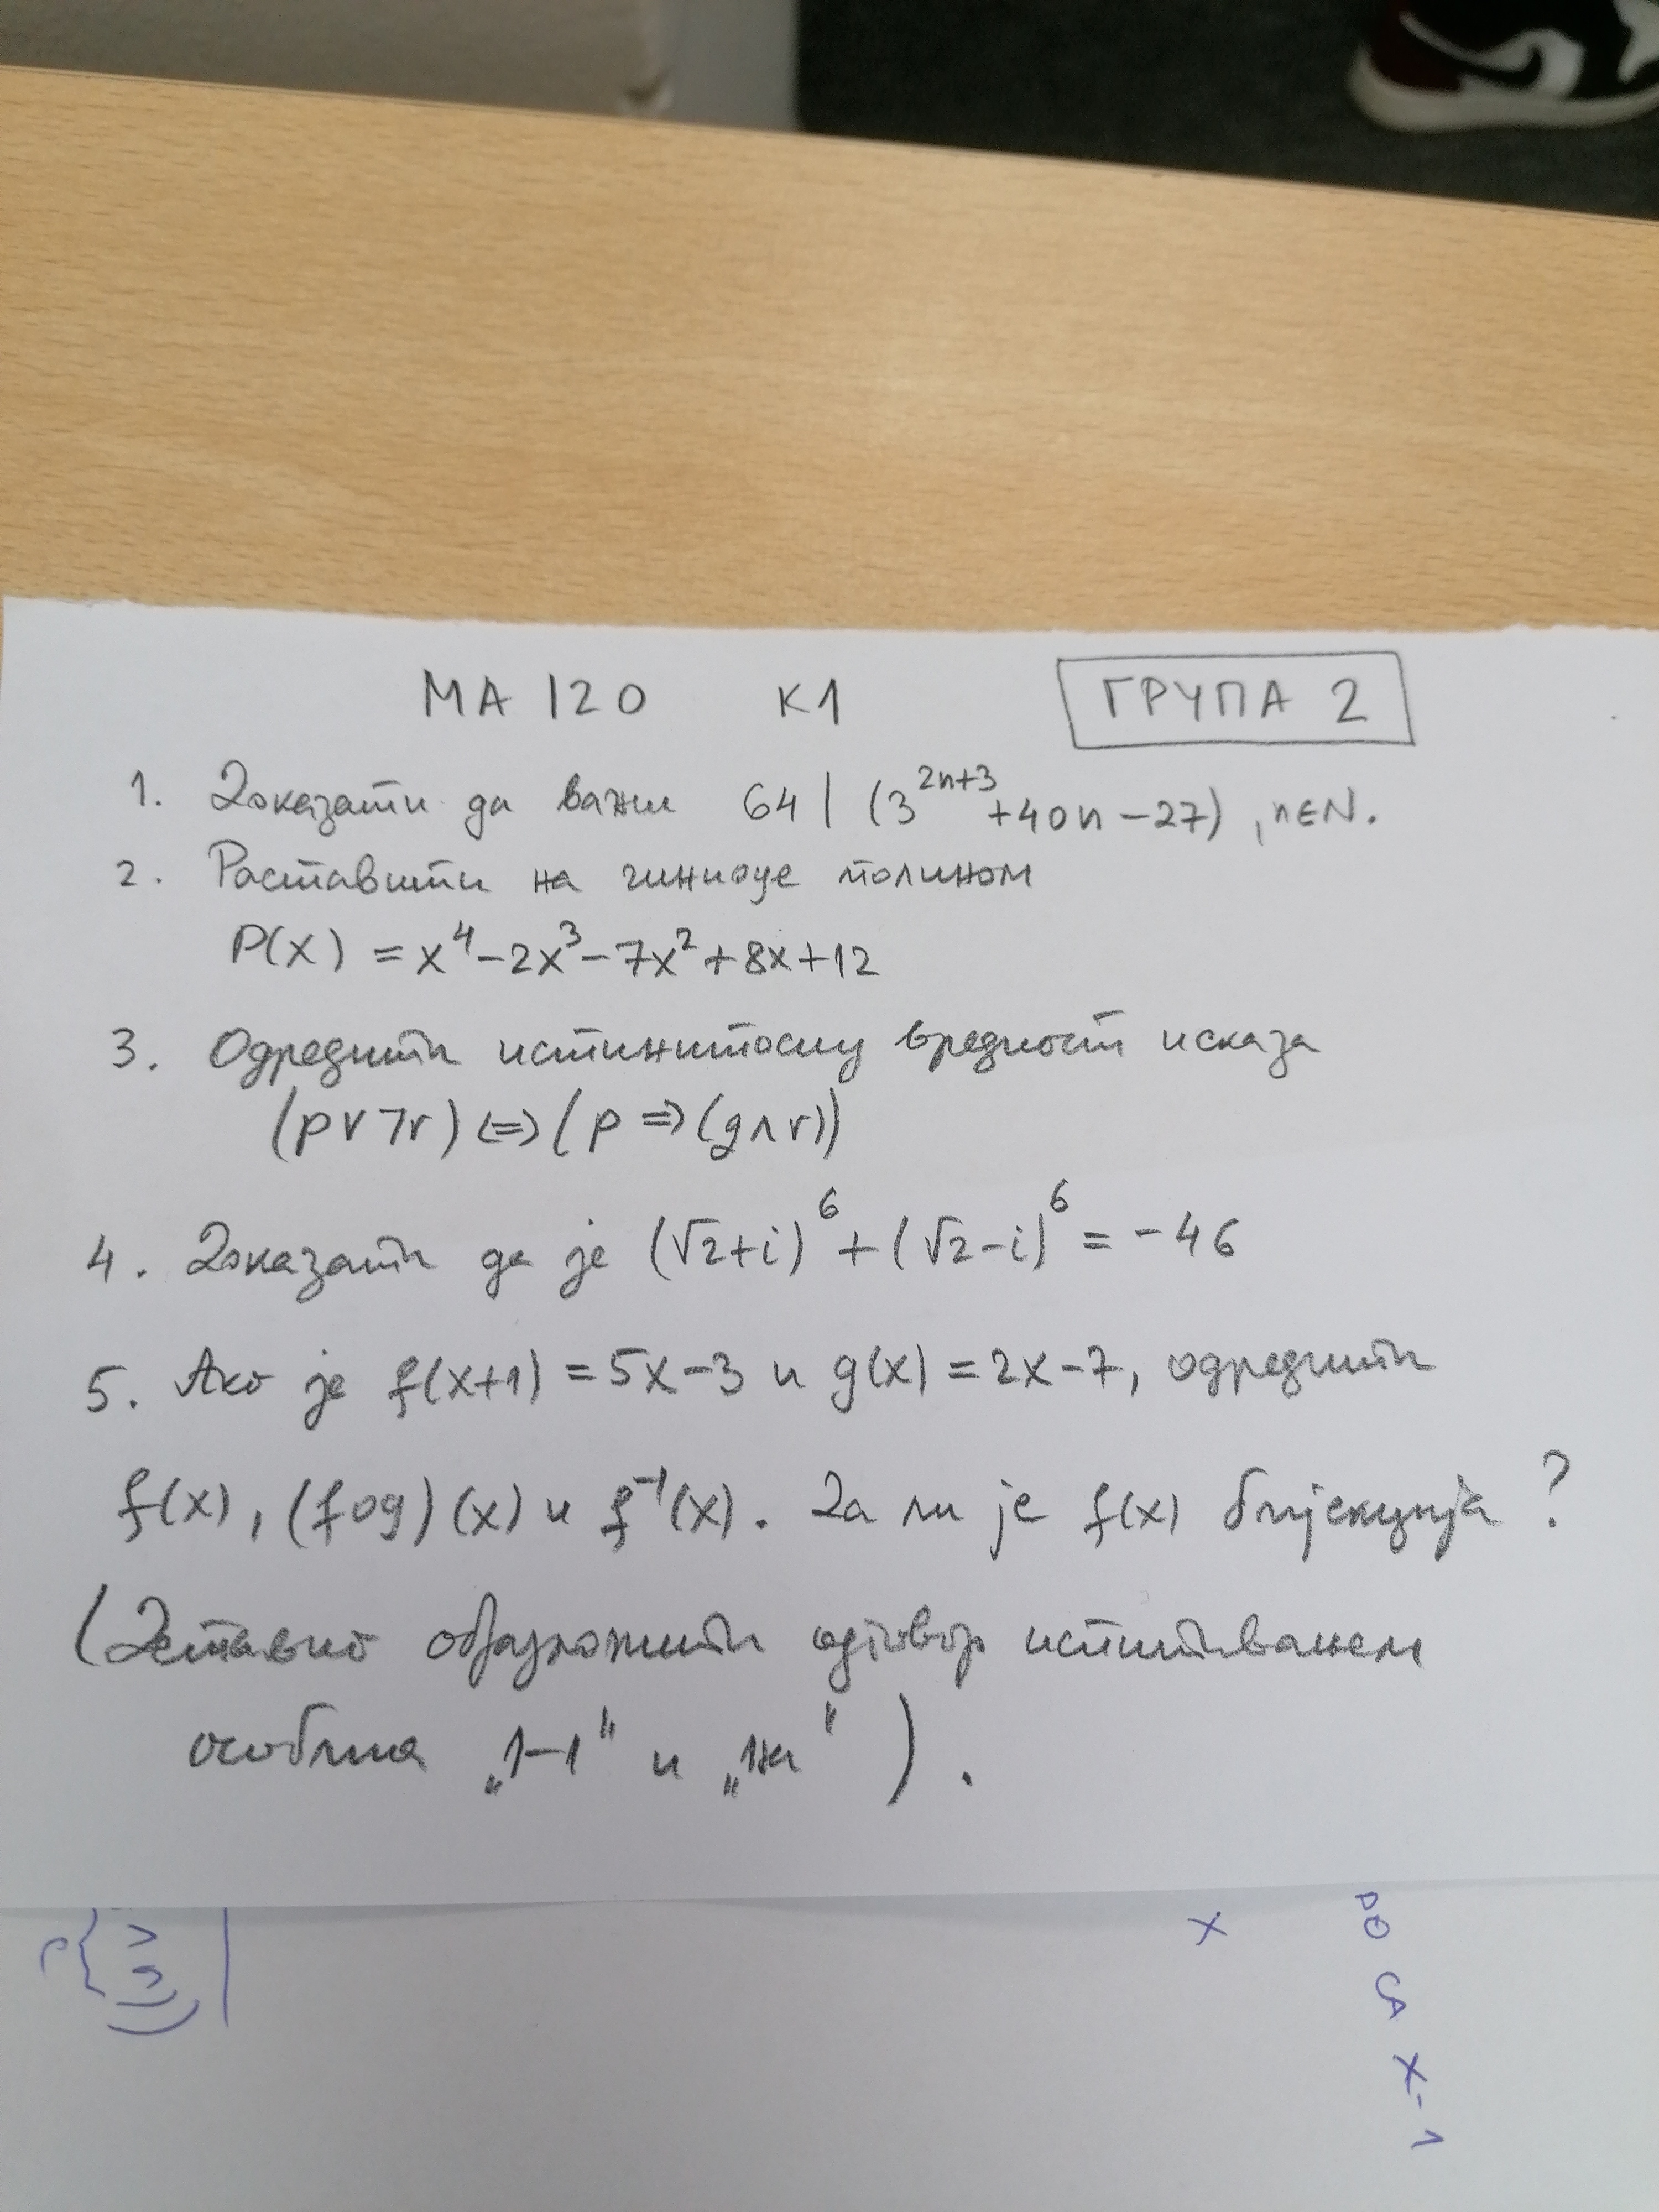 МА 120 К1 ГРУПА 2
1. Доказати да важи 64 | (3^{2n+3} + 40n - 27), n∈N.
2. Раставити на чиниоце полином
P(x) = x^4 - 2x^3 - 7x^2 + 8x + 12
3. Одредити истинитосну вредност исказа
(p ∨ ¬r) ⇔ (p ⇒ (q ∧ r))
4. Доказати да је (√2+i)^6 + (√2-i)^6 = -46
5. Ако је f(x+1) = 5x-3 и g(x) = 2x-7, одредити
f(x), (f∘g)(x) и f^{-1}(x). Да ли је f(x) бијекција?
(Детаљно образложити одговор испитивањем
особина „1-1" и „на").
x